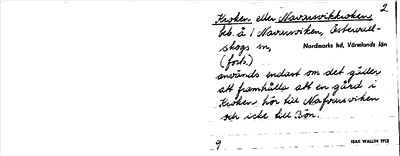 2
Kroken eller Navarsvikkroken
beb. å 1 Navarsviken, Östervall-
skogs sn, Nordmarks hd, Värmlands län
(forts.)
används endast om det gäller
att framhålla att en gård i
Kroken hör till Nafversviken
och icke till Bön.
9 ISAK WALLIN 1912